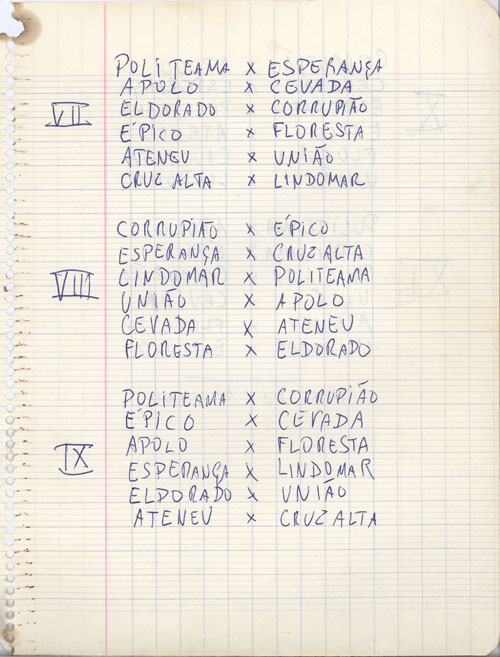 VII
POLITEAMA X ESPERANÇA
APOLO X CEVADA
ELDORADO X CORRUPIÃO
ÉPICO X FLORESTA
ATENEU X UNIÃO
CRUZ ALTA X LINDOMAR
VIII
CORRUPIÃO X ÉPICO
ESPERANÇA X CRUZ ALTA
LINDOMAR X POLITEAMA
UNIÃO X APOLO
CEVADA X ATENEU
FLORESTA X ELDORADO
IX
POLITEAMA X CORRUPIÃO
ÉPICO X CEVADA
APOLO X FLORESTA
ESPERANÇA X LINDOMAR
ELDORADO X UNIÃO
ATENEU X CRUZ ALTA